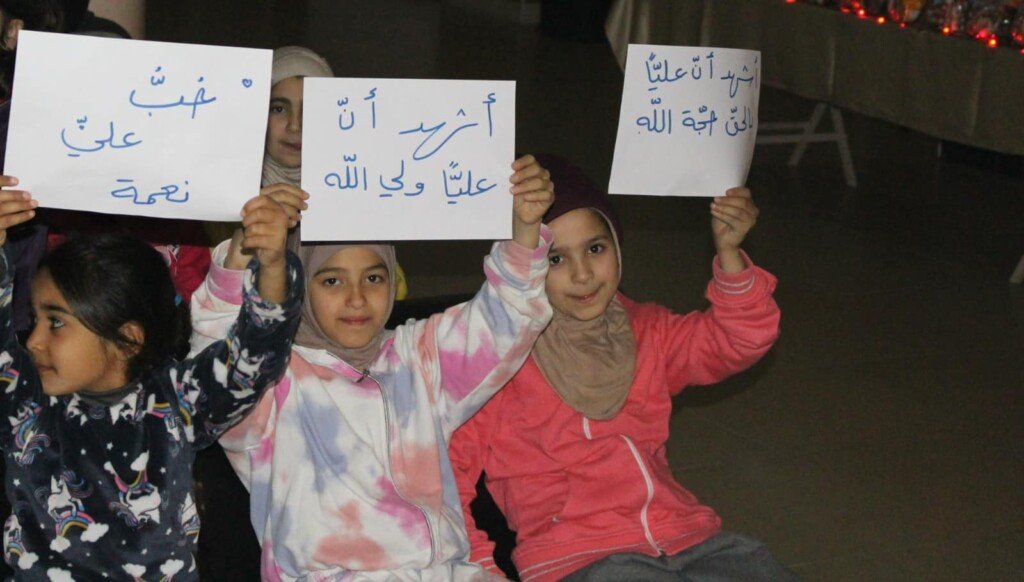 أشهد أنّ عليًّا
بالحقّ حجّة اللّه
أشهد أنّ
عليًّا ولي اللّه
حُبُّ
عليٍّ
نعمة